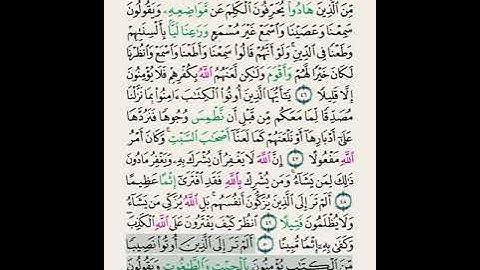 مِّنَ ٱلَّذِينَ هَادُوا۟ يُحَرِّفُونَ ٱلْكَلِمَ عَن مَّوَاضِعِهِۦ وَيَقُولُونَ
سَمِعْنَا وَعَصَيْنَا وَٱسْمَعْ غَيْرَ مُسْمَعٍ وَرَٰعِنَا لَيًّۢا بِأَلْسِنَتِهِمْ
وَطَعْنًا فِى ٱلدِّينِ ۚ وَلَوْ أَنَّهُمْ قَالُوا۟ سَمِعْنَا وَأَطَعْنَا وَٱسْمَعْ وَٱنظُرْنَا
لَكَانَ خَيْرًا لَّهُمْ وَأَقْوَمَ وَلَٰكِن لَّعَنَهُمُ ٱللَّهُ بِكُفْرِهِمْ فَلَا يُؤْمِنُونَ
إِلَّا قَلِيلًا ٤٦ يَٰٓأَيُّهَا ٱلَّذِينَ أُوتُوا۟ ٱلْكِتَٰبَ ءَامِنُوا۟ بِمَا نَزَّلْنَا
مُصَدِّقًا لِّمَا مَعَكُم مِّن قَبْلِ أَن نَّطْمِسَ وُجُوهًا فَنَرُدَّهَا
عَلَىٰٓ أَدْبَارِهَآ أَوْ نَلْعَنَهُمْ كَمَا لَعَنَّآ أَصْحَٰبَ ٱلسَّبْتِ ۚ وَكَانَ أَمْرُ
ٱللَّهِ مَفْعُولًا ٤٧ إِنَّ ٱللَّهَ لَا يَغْفِرُ أَن يُشْرَكَ بِهِۦ وَيَغْفِرُ مَا دُونَ
ذَٰلِكَ لِمَن يَشَآءُ ۚ وَمَن يُشْرِكْ بِٱللَّهِ فَقَدِ ٱفْتَرَىٰٓ إِثْمًا عَظِيمًا
٤٨ أَلَمْ تَرَ إِلَى ٱلَّذِينَ يُزَكُّونَ أَنفُسَهُم ۚ بَلِ ٱللَّهُ يُزَكِّى مَن يَشَآءُ
وَلَا يُظْلَمُونَ فَتِيلًا ٤٩ ٱنظُرْ كَيْفَ يَفْتَرُونَ عَلَى ٱللَّهِ ٱلْكَذِبَ ۖ
وَكَفَىٰ بِهِۦٓ إِثْمًا مُّبِينًا ٥٠ أَلَمْ تَرَ إِلَى ٱلَّذِينَ أُوتُوا۟ نَصِيبًا
مِّنَ ٱلْكِتَٰبِ يُؤْمِنُونَ بِٱلْجِبْتِ وَٱلطَّٰغُوتِ وَيَقُولُونَ